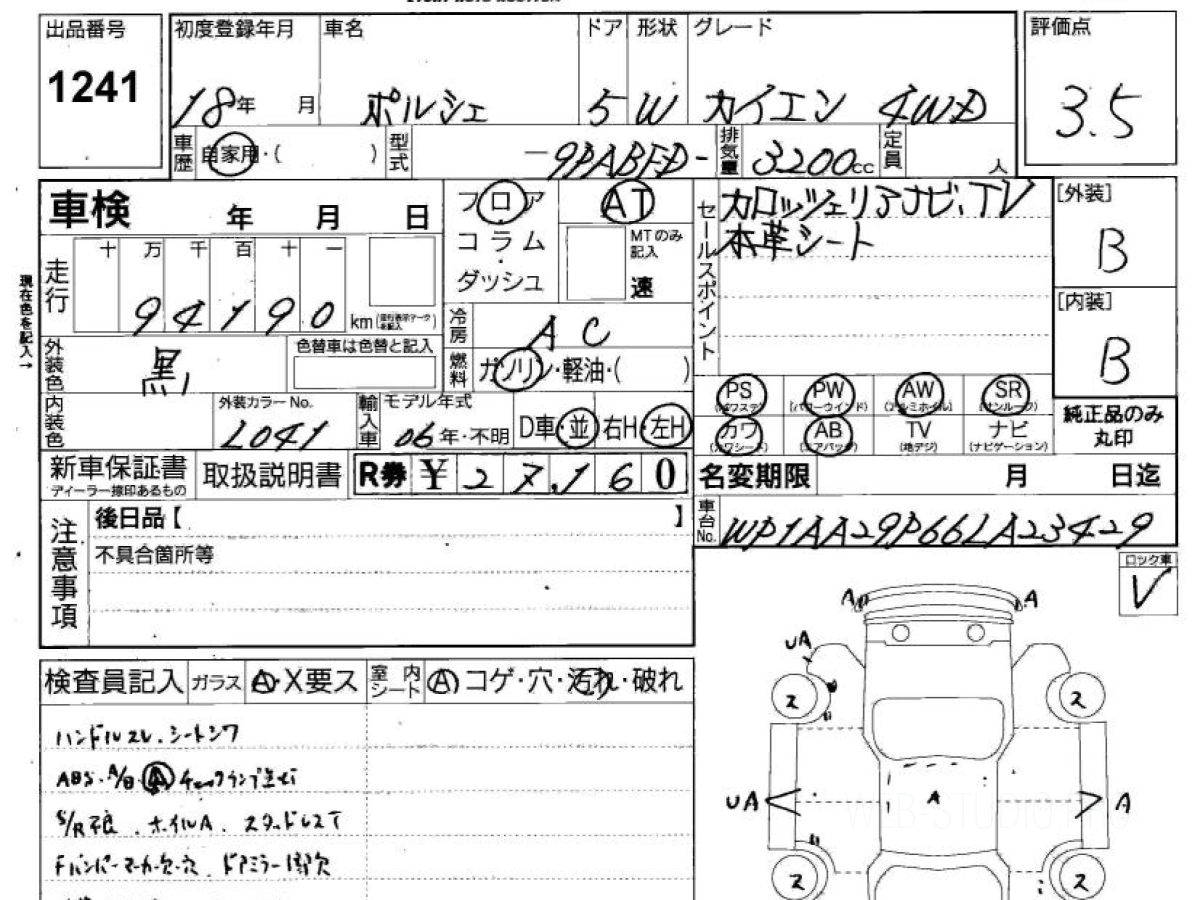 出品番号
1241
初度登録年月
18年 月
車名
ポルシェ
ドア
5
形状
W
グレード
カイエン 4WD
評価点
3.5
車歴
自家用・( )
型式
-9PABFD-
排気量
3200cc
定員
人
車検 年 月 日
フロア
・
コラム
・
ダッシュ
AT
MTのみ
記入
速
セールスポイント
カロッツェリアナビ、TV
本革シート
[外装]
B
[内装]
B
現在色を記入→
走行
十 万 千 百 十 一
9 4 1 9 0 km
冷房
AC
外装色
黒
色替車は色替と記入
燃料
ガソリン・軽油・( )
内装色
外装カラーNo.
L041
輸入車
モデル年式
06年・不明
D車・並
右H・左H
PS
(パワステ)
PW
(パワーウインド)
AW
(アルミホイル)
SR
(サンルーフ)
カワ
(カワシート)
AB
(エアバッグ)
TV
(地デジ)
ナビ
(ナビゲーション)
純正品のみ
丸印
新車保証書
ディーラー捺印あるもの
取扱説明書
R券 ¥27,160
名変期限 月 日迄
車台No.
WP1AA29P66LA23429
注意事項
後日品【 】
不具合箇所等
ロック車
V
検査員記入
ガラス
A・X要ス
室内シート
A コゲ・穴・汚れ・破れ
ハンドルスレ、シートシワ
S/R不良、ホイルA、スタッドレス
Fバンパーマーカー欠・穴、ドアミラー1部欠
A
A
UA
ス
ス
UA
A
A
ス
ス
WEB-STUDIO.PRO